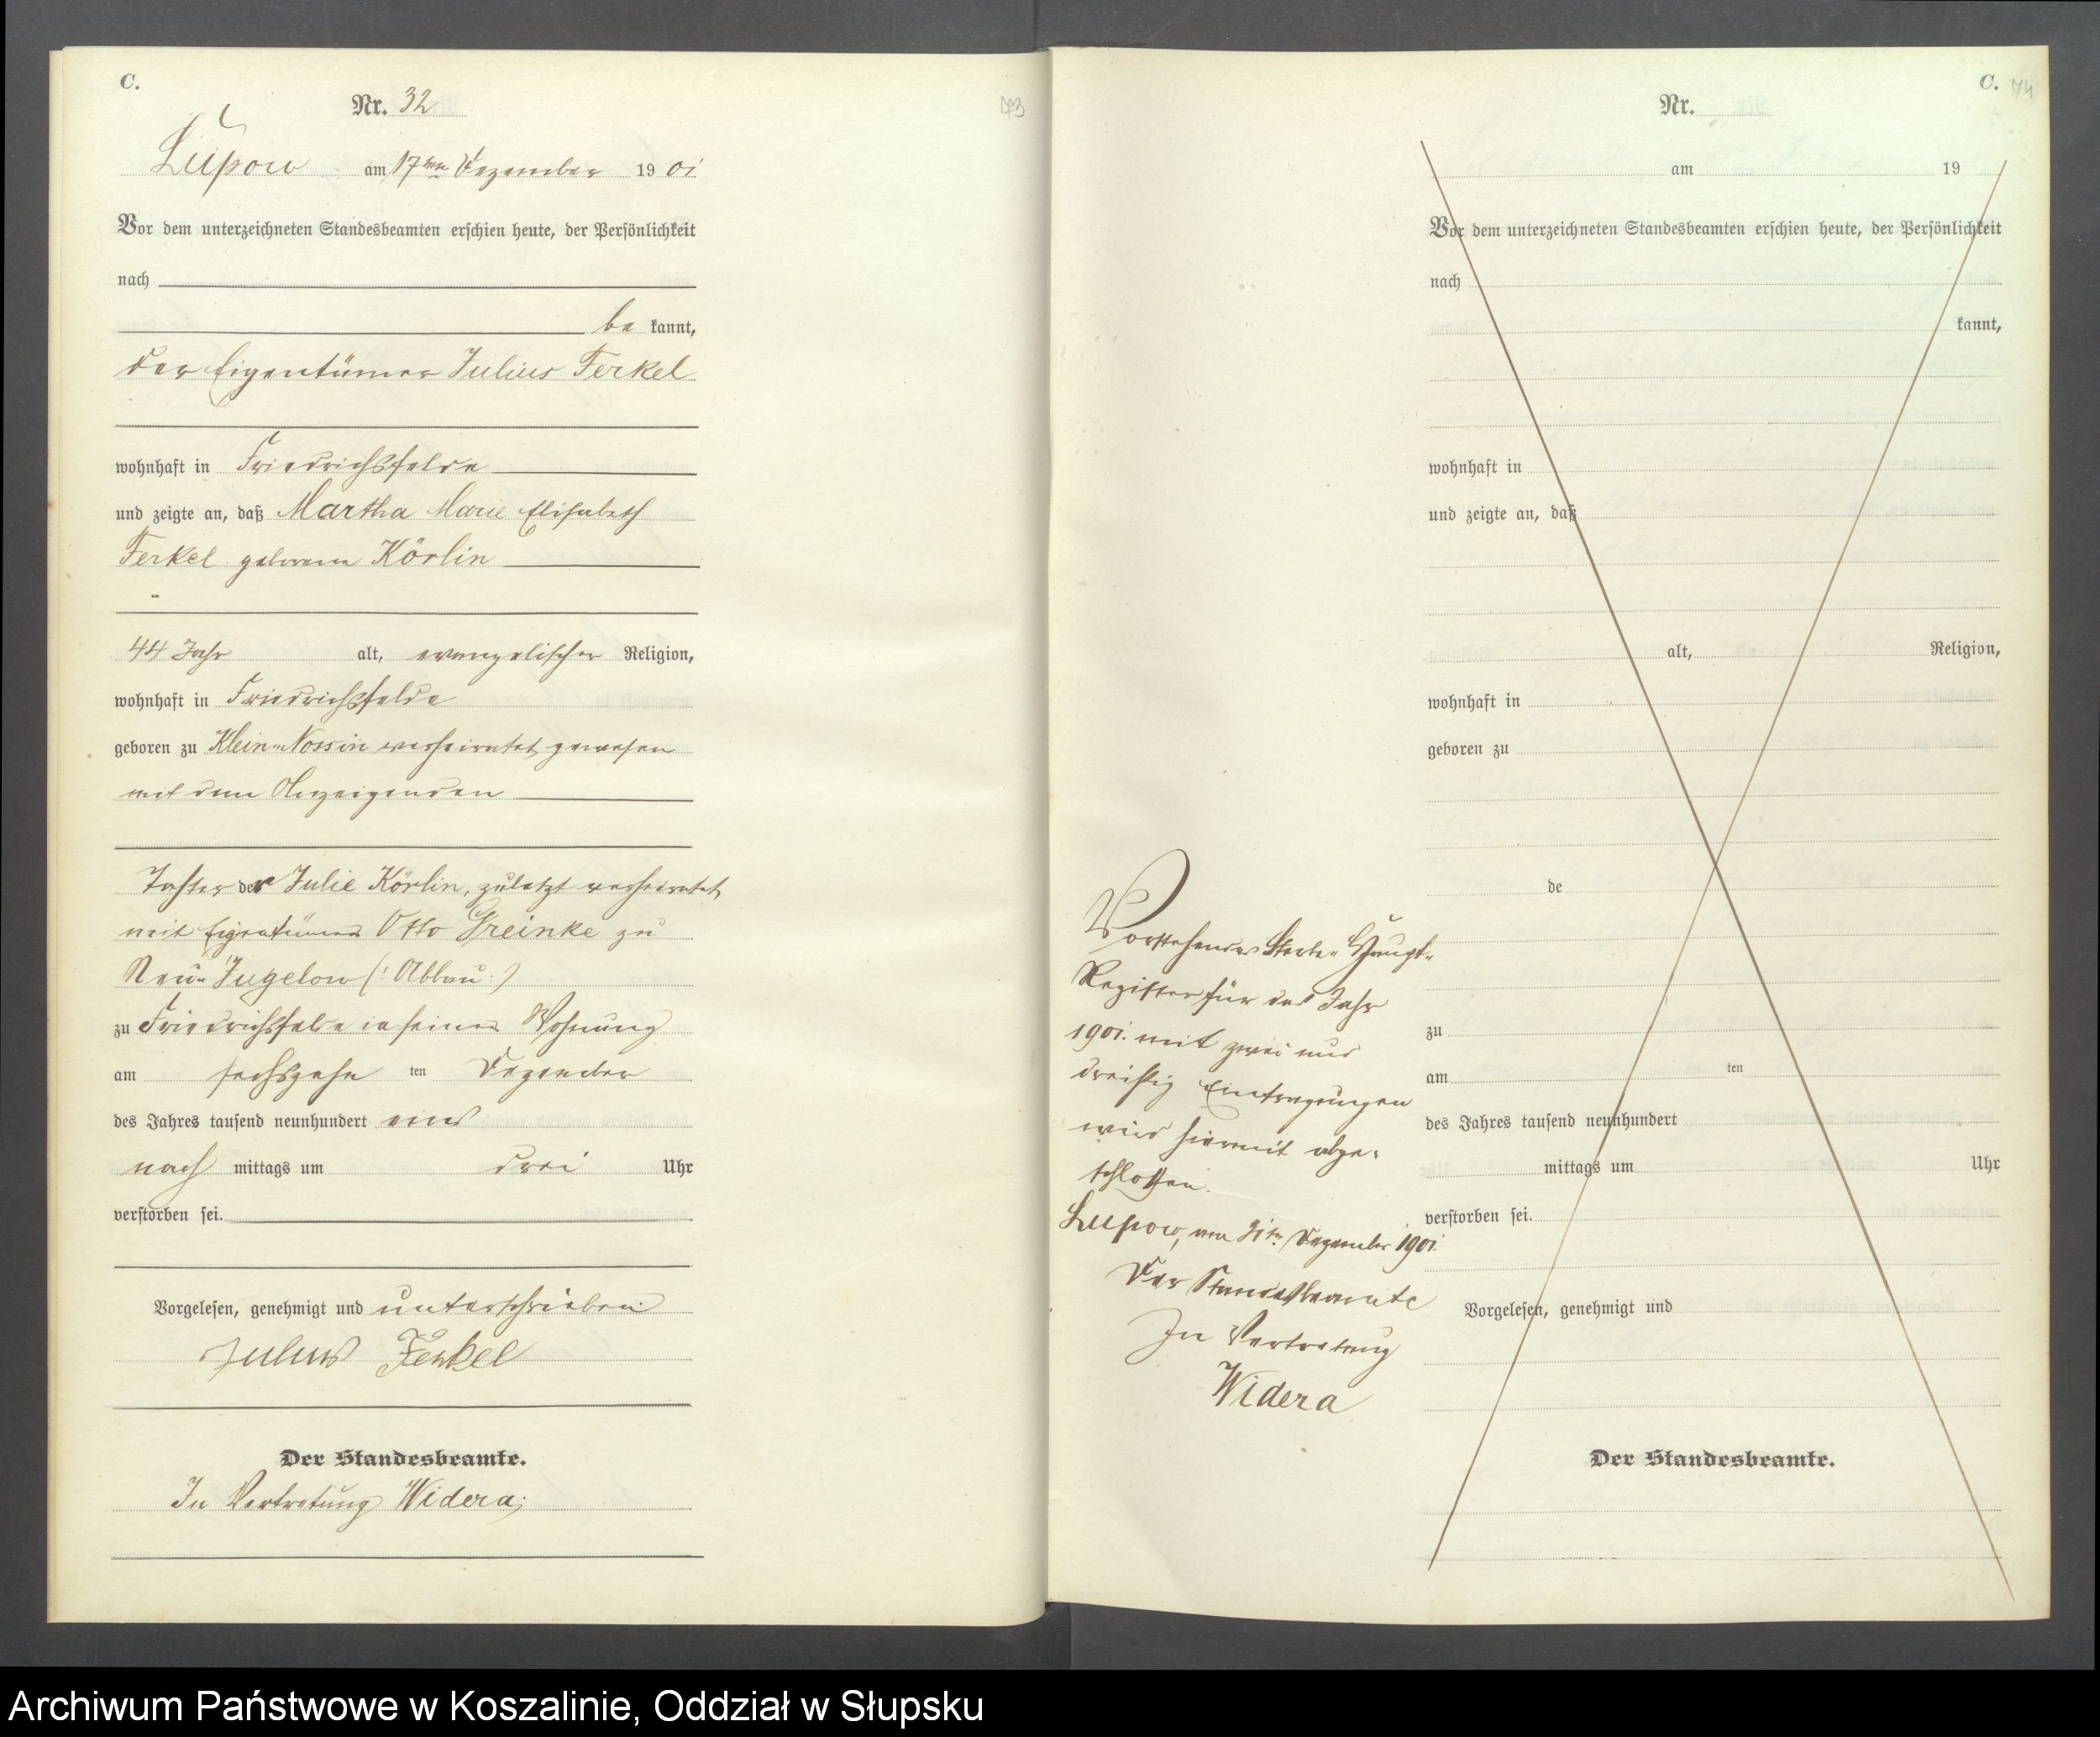 C.
Nr. 32
73
Lupow am 17ten Dezember 1901
Vor dem unterzeichneten Standesbeamten erschien heute, der Persönlichkeit
nach
be kannt,
der Eigentümer Julius Ferkel
wohnhaft in Friedrichsfelde
und zeigte an, daß Martha Marie Elisabeth
Ferkel geborene Körlin
44 Jahr alt, evangelischer Religion,
wohnhaft in Friedrichsfelde
geboren zu Klein-Nossin verheiratet gewesen
mit dem Anzeigenden
Tochter der Julie Körlin, zuletzt verheiratet
mit Eigentümer Otto Greinke zu
Neu-Jugelow (: Abbau :)
zu Friedrichsfelde in seiner Wohnung
am sechszehn ten Dezember
des Jahres tausend neunhundert eins
nach mittags um drei Uhr
verstorben sei.
Vorgelesen, genehmigt und unterschrieben
Julius Ferkel
Der Standesbeamte.
In Vertretung Widera
C. 74
Nr.
am 19
Vor dem unterzeichneten Standesbeamten erschien heute, der Persönlichkeit
nach
kannt,
wohnhaft in
und zeigte an, daß
alt, Religion,
wohnhaft in
geboren zu
de
zu
am ten
des Jahres tausend neunhundert
mittags um Uhr
verstorben sei.
Vorgelesen, genehmigt und
Der Standesbeamte.
Vorstehendes Sterbe-Haupt-
Register für das Jahr
1901 mit zwei und
dreißig Eintragungen
wird hiermit abge-
schlossen.
Lupow, am 31ten Dezember 1901.
Der Standesbeamte
In Vertretung
Widera
Archiwum Państwowe w Koszalinie, Oddział w Słupsku